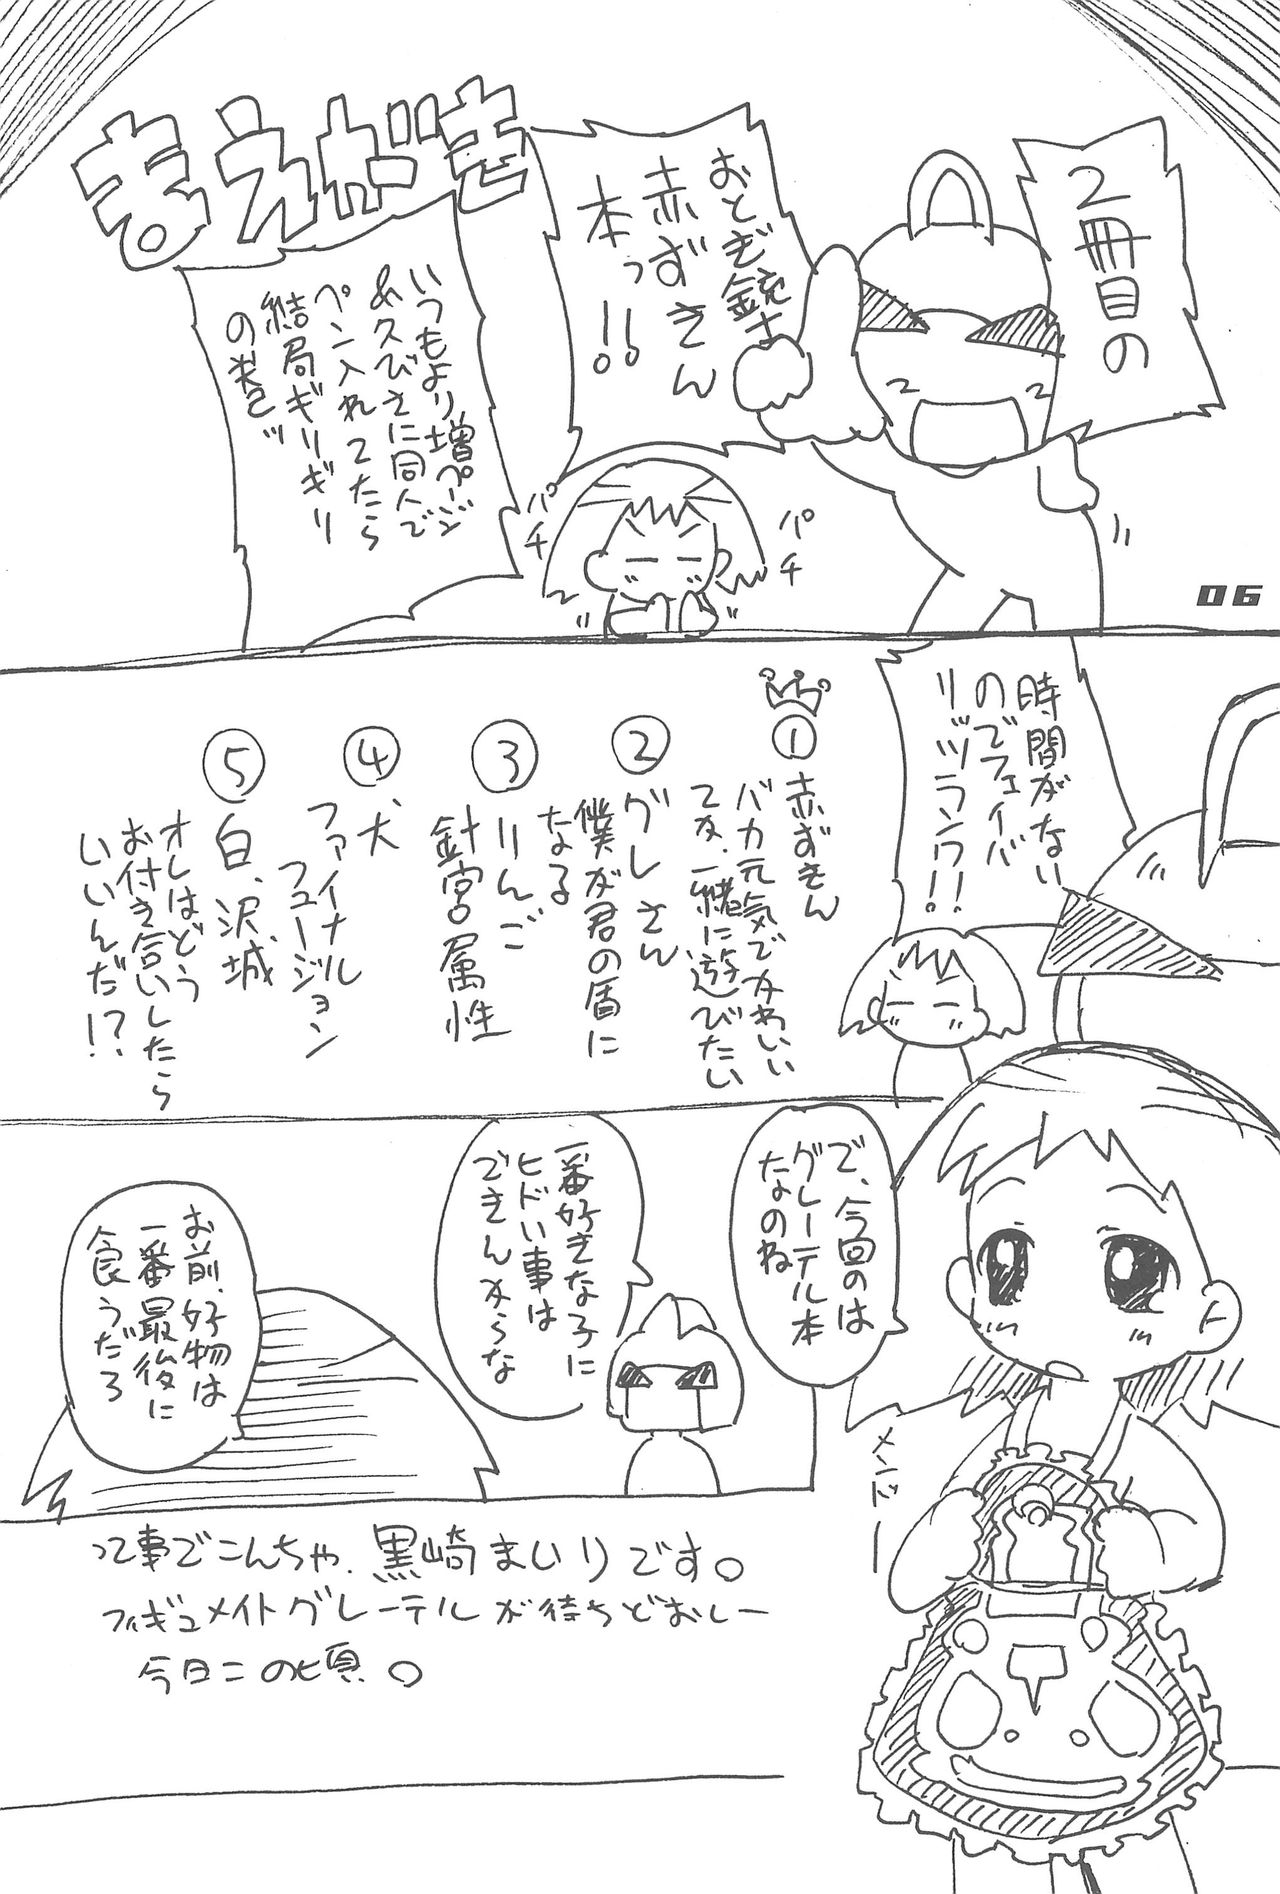 まえがき
2冊目の
おとぎ銃士
赤ずきん
本っ!!
いつもより増ページ
&久びさに同人で
ペン入れてたら
結局ギリギリ
パチ
パチ
06
時間がない
のでフェイバ
リッツランク!!
①赤ずきん
バカ元気でかわいい
てか、一緒に遊びたい
②グレさん
僕が君の盾に
なる
③りんご
針宮属性
④犬
ファイナル
フュージョン
⑤白、沢城
オレはどう
お付き合いしたら
いいんだ!?
で、今回のは
グレーテル本
なのね
一番好きな子に
ヒドい事は
できんからな
お前、好物は
一番最後に
食うだろ
メンドー
って事でこんちゃ、黒崎まいりです。
フィギュメイトグレーテルが待ちどおしー
今日この頃。